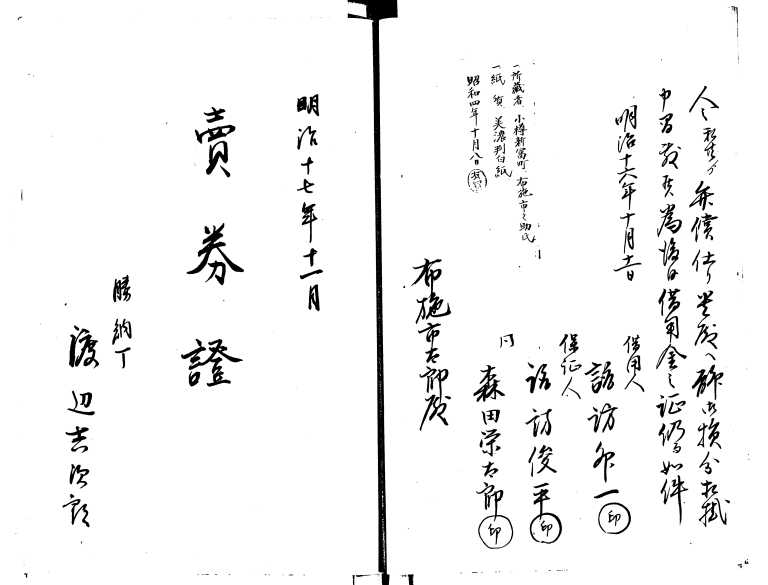 人々私共ゟ弁償仕り貴殿へ聊御損分相掛
申間敷候為後日借用金之証仍而如件
明治十六年十月
借用人
諏訪 一 印
保証人
諏訪俊平 印
同
森田栄太郎 印
布施市太郎殿
一所蔵者 小樽新富町 布施市之助氏
一紙質 美濃判白紙
昭和四年十月八日
明治十七年十一月
賣券證
勝納丁
渡辺吉次郎